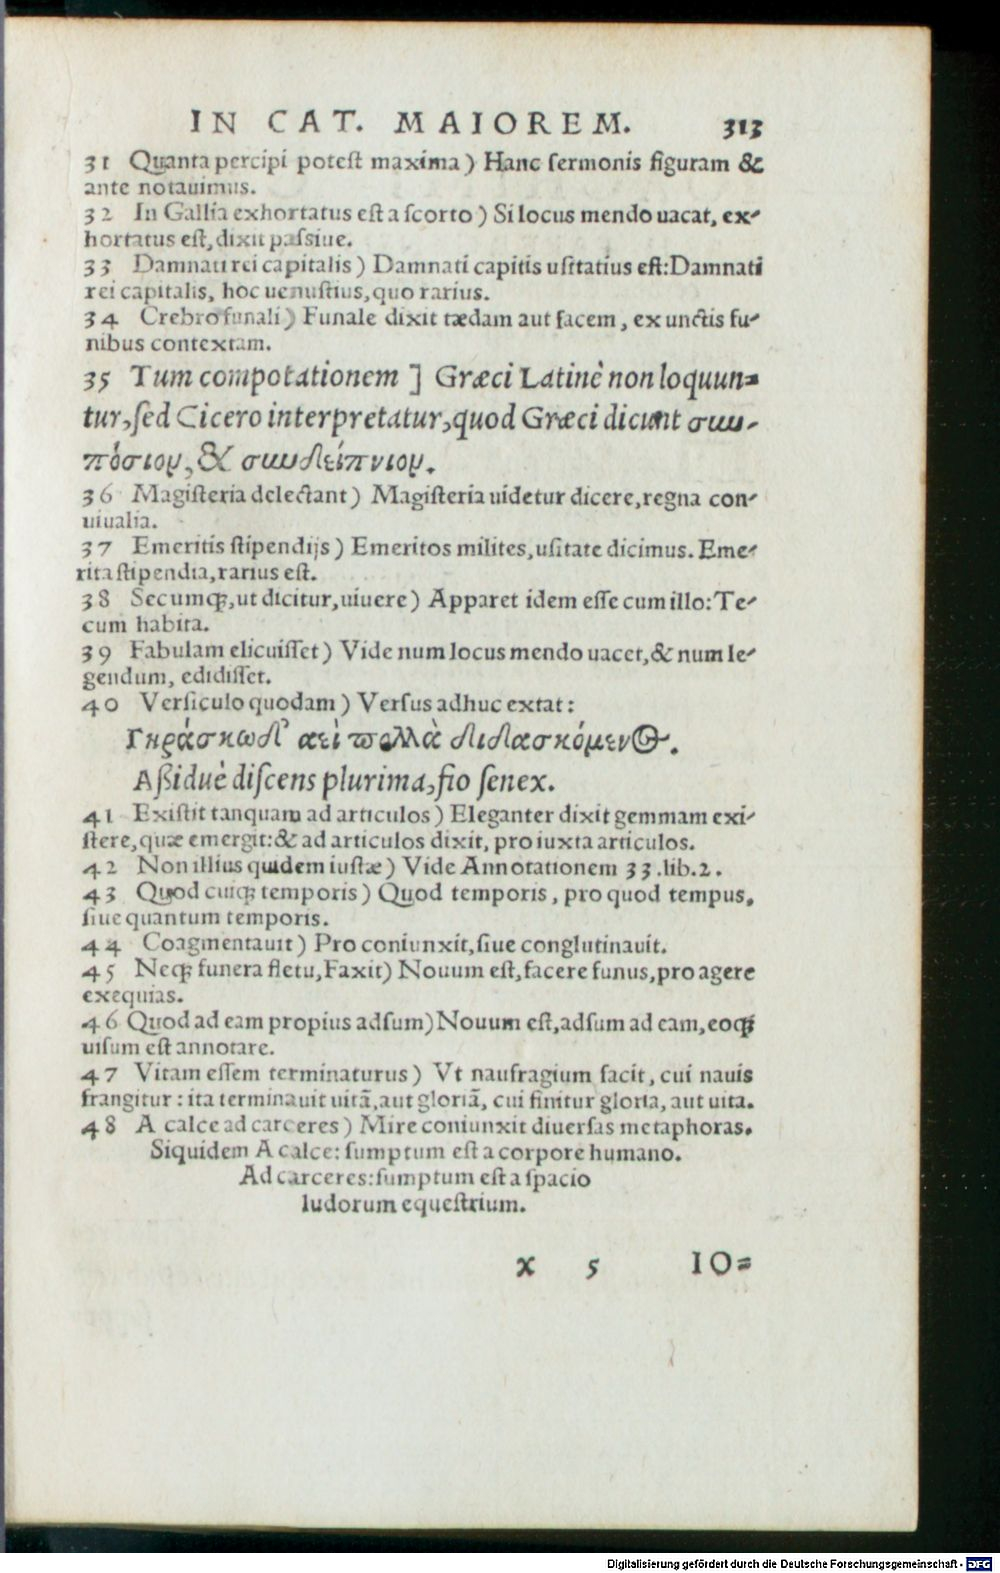 IN CAT. MAIOREM. 313
31 Quanta percipi potest maxima) Hanc sermonis figuram &
ante notauimus.
32 In Gallia exhortatus est a scorto) Si locus mendo uacat, ex-
hortatus est, dixit passiue.
33 Damnati rei capitalis) Damnati capitis usitatius est: Damnati
rei capitalis, hoc uenustius, quo rarius.
34 Crebro funali) Funale dixit tædam aut facem, ex unctis fu-
nibus contextam.
35 Tum compotationem ] Græci Latinè non loquun=
tur, sed Cicero interpretatur, quod Græci dicunt συμ-
πόσιον, & συνδείπνιον.
36 Magisteria delectant) Magisteria uidetur dicere, regna con-
uiualia.
37 Emeritis stipendijs) Emeritos milites, usitate dicimus. Eme-
rita stipendia, rarius est.
38 Secumq;, ut dicitur, uiuere) Apparet idem esse cum illo: Te-
cum habita.
39 Fabulam elicuisset) Vide num locus mendo uacet, & num le-
gendum, edidisset.
40 Versiculo quodam) Versus adhuc extat:
Γηράσκω δ' αεὶ πολλὰ διδασκόμενος.
Aßiduè discens plurima, fio senex.
41 Existit tanquam ad articulos) Eleganter dixit gemmam exi-
stere, quæ emergit: & ad articulos dixit, pro iuxta articulos.
42 Non illius quidem iustæ) Vide Annotationem 33. lib. 2.
43 Quod cuiq; temporis) Quod temporis, pro quod tempus,
siue quantum temporis.
44 Coagmentauit) Pro coniunxit, siue conglutinauit.
45 Neq; funera fletu, Faxit) Nouum est, facere funus, pro agere
exequias.
46 Quod ad eam propius adsum) Nouum est, adsum ad eam, eoq;
uisum est annotare.
47 Vitam essem terminaturus) Vt naufragium facit, cui nauis
frangitur: ita terminauit uitã, aut gloriã, cui finitur gloria, aut uita.
48 A calce ad carceres) Mire coniunxit diuersas metaphoras.
Siquidem A calce: sumptum est a corpore humano.
Ad carceres: sumptum est a spacio
ludorum equestrium.
x 5 IO=
Digitalisierung gefördert durch die Deutsche Forschungsgemeinschaft - DFG